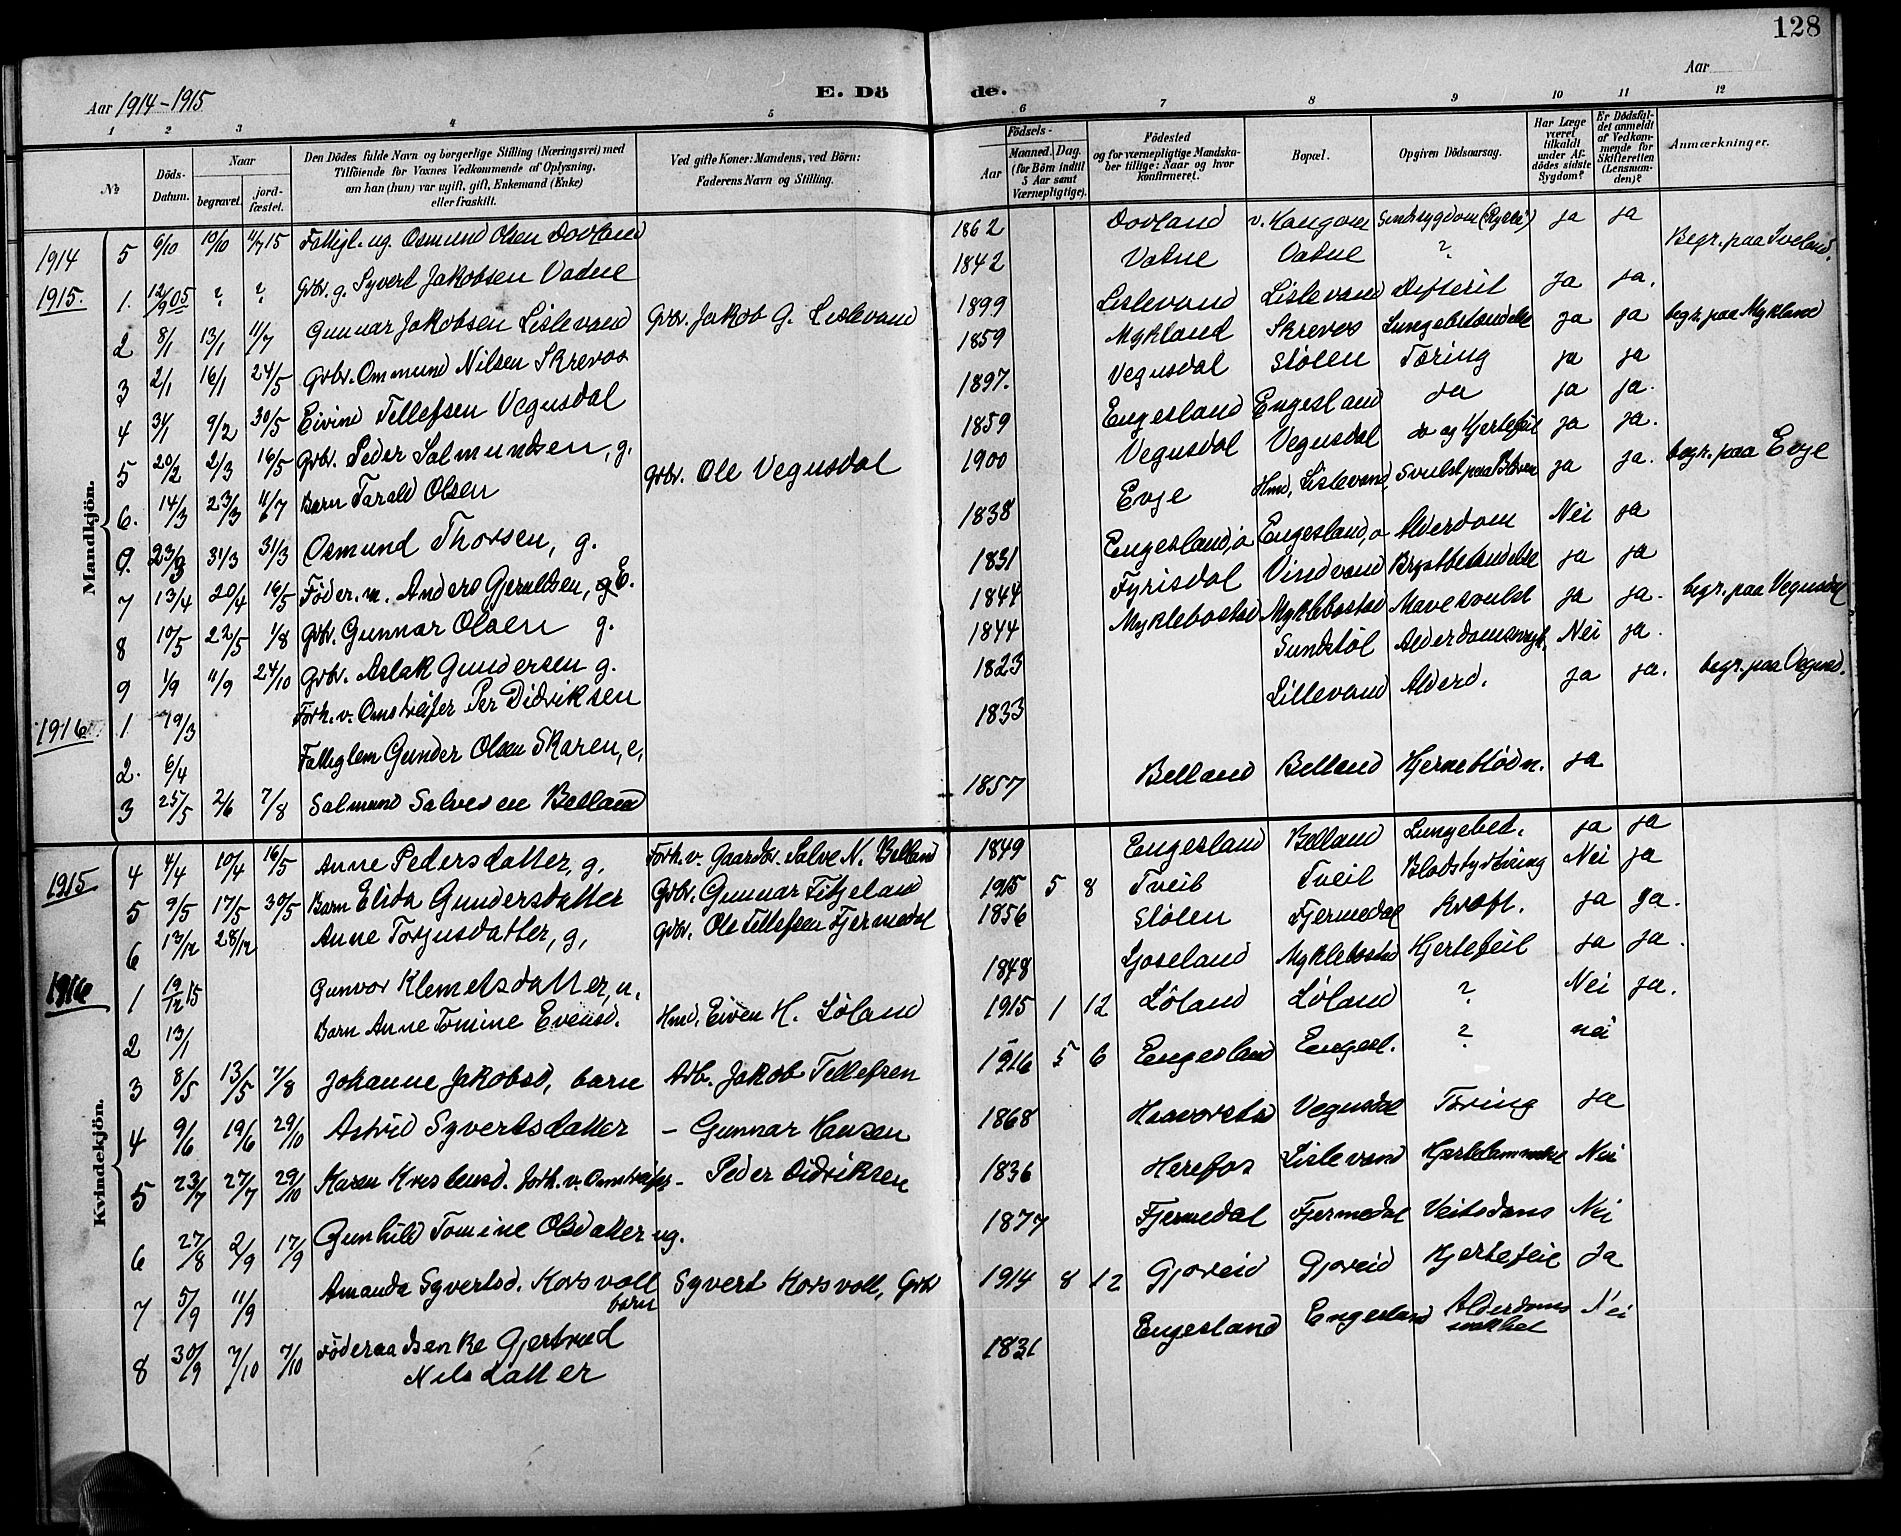 128
Aar 1914-1915
E. Dö
de.
Aar
1 2 3 4 5 6 7 8 9 10 11 12
No
Döds-Datum.
Naar
begravet.
jord-fæstet.
Den Dödes fulde Navn og borgerlige Stilling (Næringsvei) med
Tilföiende för Voxnes Vedkommende af Oplysning,
om han (hun) var ugift, gift, Enkemand (Enke)
eller fraskilt.
Ved gifte Koner: Mandens, ved Börn:
Faderens Navn og Stilling.
Födsels-
Aar
Maaned. Dag.
(for Börn indtil
5 Aar samt
Værnepligtige).
Födested
og for værnepligtige Mandska-
ber tillige: Naar og hvor
konfirmeret.
Bopæl.
Opgiven Dödsaarsag.
Har Læge
været
tilkaldt
under Af-
dödes sidste
Sygdom?
Er Dödsfal-
det anmeldt
af Vedkom-
mende for
Skifteretten
(Lensman-
den)?
Anmærkninger.
Mandkjön.
1914 5 6/10 10/10 11/7 15 Fattigl. ug. Osmund Olsen Dovland 1862 Dovland v. Haugom Sindssygdom ja ja
1915. 1. 12/9 05 ? ? Gbr. g. Syvert Jakobsen Vatne 1842 Vatne Vatne ? Begr. paa Iveland.
2 8/1 13/1 11/7 Gunnar Jakobsen Lislevand Gbr. Jakob G. Lislevand 1899 Lislevand Lislevand Difterit Ja ja.
3 2/1 16/1 24/5 Gbr. Ommund Nilsen Skrevos 1859 Mykland Skrevos Lungebetændelse ja ja begr. paa Mykland
4 31/1 9/2 30/5 Eivind Tellefsen Vegusdal 1897. Vegusdal Stolen Tæring ja ja
5 20/2 2/3 16/5 Gbr. Peder Salmundsen, g. 1859 Engesland Engesland da ja ja.
6. 14/3 23/3 11/7 Barn Tarald Olsen Gbr. Ole Vegusdal 1900 Vegusdal Vegusdal do og Hjertefeil ja ja.
23/3 31/3 31/3 Osmund Thorsen, g. 1838 Evje Hmd, Lislevand Svulst paa ja ja. begr. paa Evje
7 13/4 20/4 16/5 Föder. m. Anders Gjeruldsen, E. 1831 Engesland, ö Engesland, ö Alderdom Nei ja
8 10/5 22/5 1/8 Gbr. Gunnar Olsen g. 1844 Fyrisdal Vindvand Brystbetændelse ja ja
9 1/9 11/9 24/10 Gbr. Aslak Gundersen g. 1844 Myklebostad Myklebostad Mavesvulst ja ja. begr. paa Vegusdal
1916 1 19/3 Forh. v. Omstreifer Per Didriksen 1823 Sundstöl Nei ja.
2. 6/4 Fattiglem Gunder Olsen Skaren, e, 1833 Lillevand Alderd. ja ja. begr. paa Vegusd.
3 25/5 2/6 7/8 Salmund Salvesen Belland 1857 Belland Belland Hjerneblödn. ja
Kvindekjön.
1915 4 4/4 10/4 16/5 Anne Pedersdatter, g. Forh. v. Gaardbr. Salve N. Belland 1849 Engesland Belland Lungebet. ja ja
5 9/5 17/5 30/5 Barn Elida Gundersdatter Gbr. Gunnar Fitjeland 1915 5 8 Tveit Tveit Nei ja
6 13/12 28/12 Anne Torjusdatter, g, Gbr. Ole Tellefsen Fjermedal 1856 Stolen Fjermedal Kræft. ja ja.
1916 1 19/12 15 Gunvor Klemetsdatter, u. 1848 Ljoseland Myklebostad Hjertefeil ja ja.
2 13/1 Barn Anne Tomine Evensd. Hmd. Eiven H. Löland 1915 1 12 Löland Löland ? Nei ja.
3 8/5 13/5 7/8 Johanne Jakobsd, barn Jakob Tellefsen 1916 5 6 Engesland Engesl. ? nei
4 9/6 19/6 29/10 Astrid Syvertsdatter - Gunnar Hansen 1868 Vegusdal Tæring ja
5 23/7 27/7 29/10 Karen Kristensd. forh. v. Omstreifer - Peder Didriksen 1836 Herefos Lislevand Nei
6 27/8 2/9 17/9 Gunhild Tomine Olsdatter ug. 1877 Fjermedal Fjermedal Veitsdans Nei
7 5/9 11/9 Amanda Syvertsd. Korsvoll barn Syvert Korsvoll, Gbr 1914 8 12 Gjoreid Gjoreid Hjertefeil Ja
8 30/9 7/10 7/10 Föderaadsenke Gjertrud
Nilsdatter 1831 Engesland Engesland Alderdoms
svakhet Nei